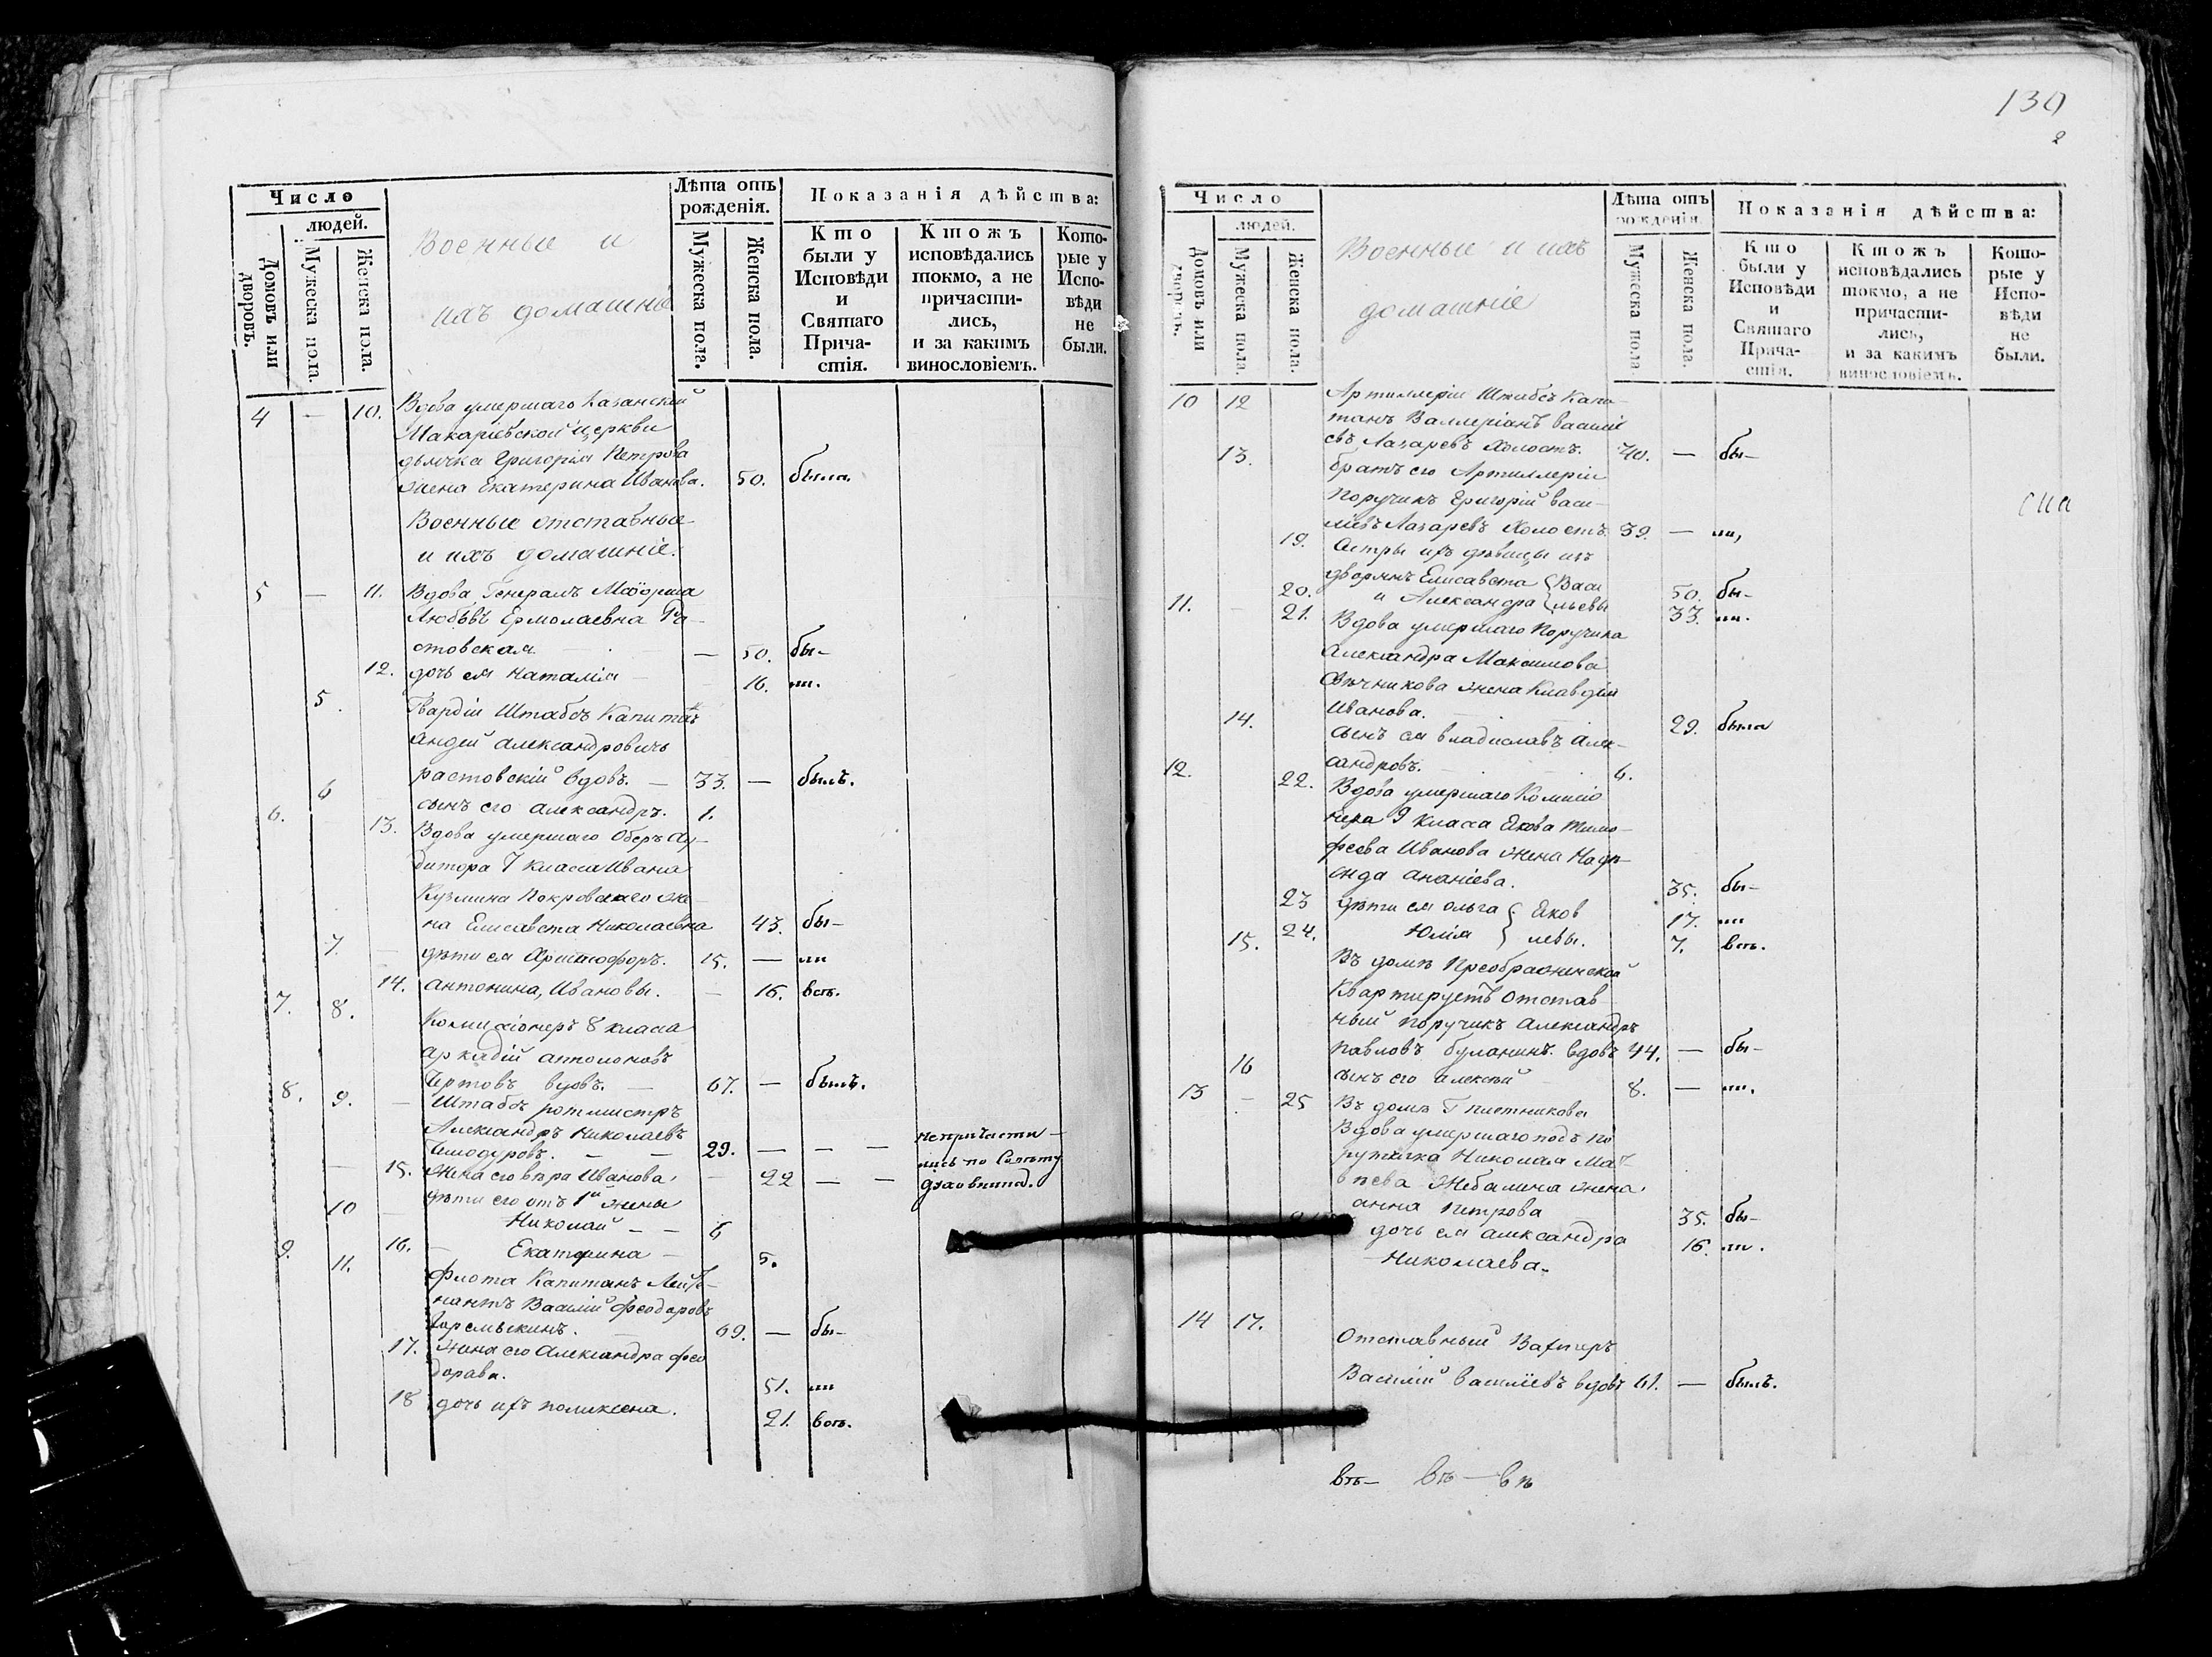 Число
людей.
Домовъ или дворовъ.
Мужеска пола.
Женска пола.
Военные и
ихъ домашніе
Лѣта отъ рожденія.
Мужеска пола.
Женска пола.
Показанія дѣйства:
Кто были у Исповѣди и Святаго Причастія.
Ктожъ исповѣдались токмо, а не причастились, и за какимъ винословіемъ.
Которые у Исповѣди не были.
4 — 10. Вдова умершаго Казанской
Макаріевской церкви
дьячка Григорія Петрова
жена Екатерина Иванова. 50. была
Военные отставные
и ихъ домашніе.
5 — 11. Вдова Генералъ Маіорша
Любовь Ермолаевна Ра-
стовская — 50. бы-
12. дочь ея Наталія — 16. ли.
5. Гвардіи Штабсъ Капитанъ
Андей Александровичь
растовскій вдовъ. — 33. — былъ.
6 сынъ его Александръ. 1.
6. 13. Вдова умершаго Оберъ Ау-
дитора 7 класса Ивана
Кузмина Покровскаго же-
на Елисавета Николаевна 43. бы-
7. — дѣти ея Христофоръ. 15. — ли
14. Антонина, Ивановы. — 16. всѣ.
7. 8. Комисіонеръ 8 класса
Аркадій Апполоновъ
Чертовъ вдовъ. — 67. — былъ.
8. 9. — Штабсъ ротмистръ
Александръ Николаевъ
Чемодуровъ. — — 29. — — — непричасти-
— 15. Жена его вѣра Иванова. — 22 — — лись по Совѣту
духовника.
10 — дѣти его отъ 1й жены
Николай — — 6
16. — Екатерина — 5.
9. 11. флота Капитанъ Лейте-
нантъ Василій Феодоровъ
Горемыкинъ. 69. — бы-
17. Жена его Александра Фео
дорава. 51. ли
18 дочь ихъ поликсена. 21. всѣ.
130
2
Число
людей.
Домовъ или дворовъ.
Мужеска пола.
Женска пола.
Военные и ихъ
домашніе
Лѣта отъ рожденія.
Мужеска пола
Женска пола.
Показанія дѣйства:
Кто были у Исповѣди и Святаго Причастія.
Ктожъ исповѣдались токмо, а не причастились, и за какимъ винословіемъ.
Которые у Исповѣди не были.
10 12 Артиллеріи Штабсъ Капи-
танъ Валлеріанъ василі
евъ Лазаревъ Холостъ. 40. — бы-
13. братъ его Артиллеріи
Поручикъ Григорій васи-
ліевъ Лазаревъ Холостъ. 39. — ли,
19. Сестры ихъ дѣвицы изъ
дворянъ Елисавета Васи 50. бы-
20. и Александра льевы 33. ли.
11. — 21. Вдова умершаго Поручика
Александра Максимова
Свѣчникова жена Клавдія
Иванова. — — 29. была
14. сынъ ея владиславъ Алек-
сандровъ. 6.
12. 22. Вдова умершаго Комисіо
нера 9 класса Екова Тимо-
феева Иванова жена Надѣ-
жда Ананіева. 35. бы-
23 дѣти ея Ольга Еков 17. ли
24. Юлія левы. 7. всѣ.
15. Въ домѣ Преображенской
Квартируетъ Отстав
ный поручикъ Александръ
Павловъ буланинъ. вдовъ 44. — бы-
16 сынъ его Алексѣй 8. — ли.
13 — 25 Въ домѣ
Вдова умершаго подъ по
ручика Николая Мат
вѣева Жебалина жена
анна Петрова 35. бы-
дочь ея Александра 16. ли.
Николаева.
14 17. Отставный Вахтеръ
Василій Василіевъ вдовъ 61. — былъ.